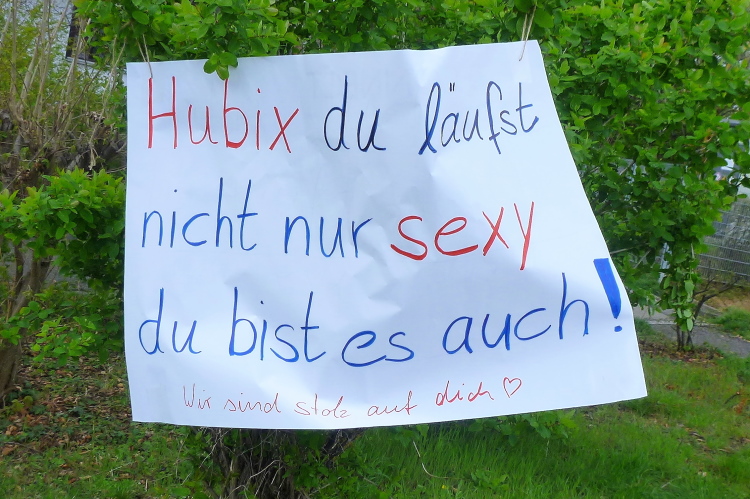 Hubix du läufst
nicht nur sexy
du bist es auch!
Wir sind stolz auf dich ♡